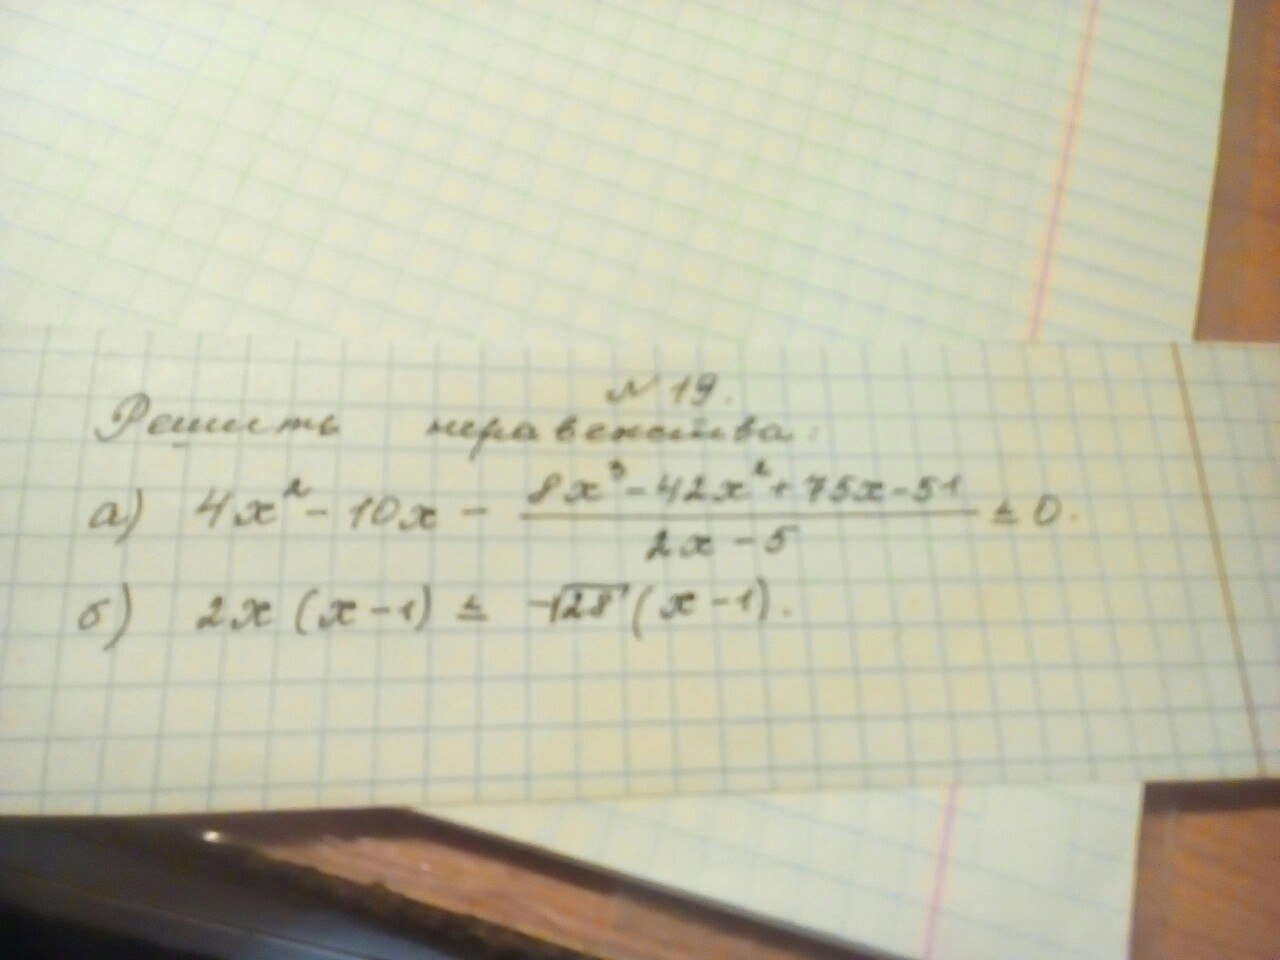 № 19.
Решить неравенства:
а) 4x² - 10x - (8x³ - 42x² + 75x - 51)/(2x - 5) ≤ 0.
б) 2x (x - 1) ≤ -√28 (x - 1).